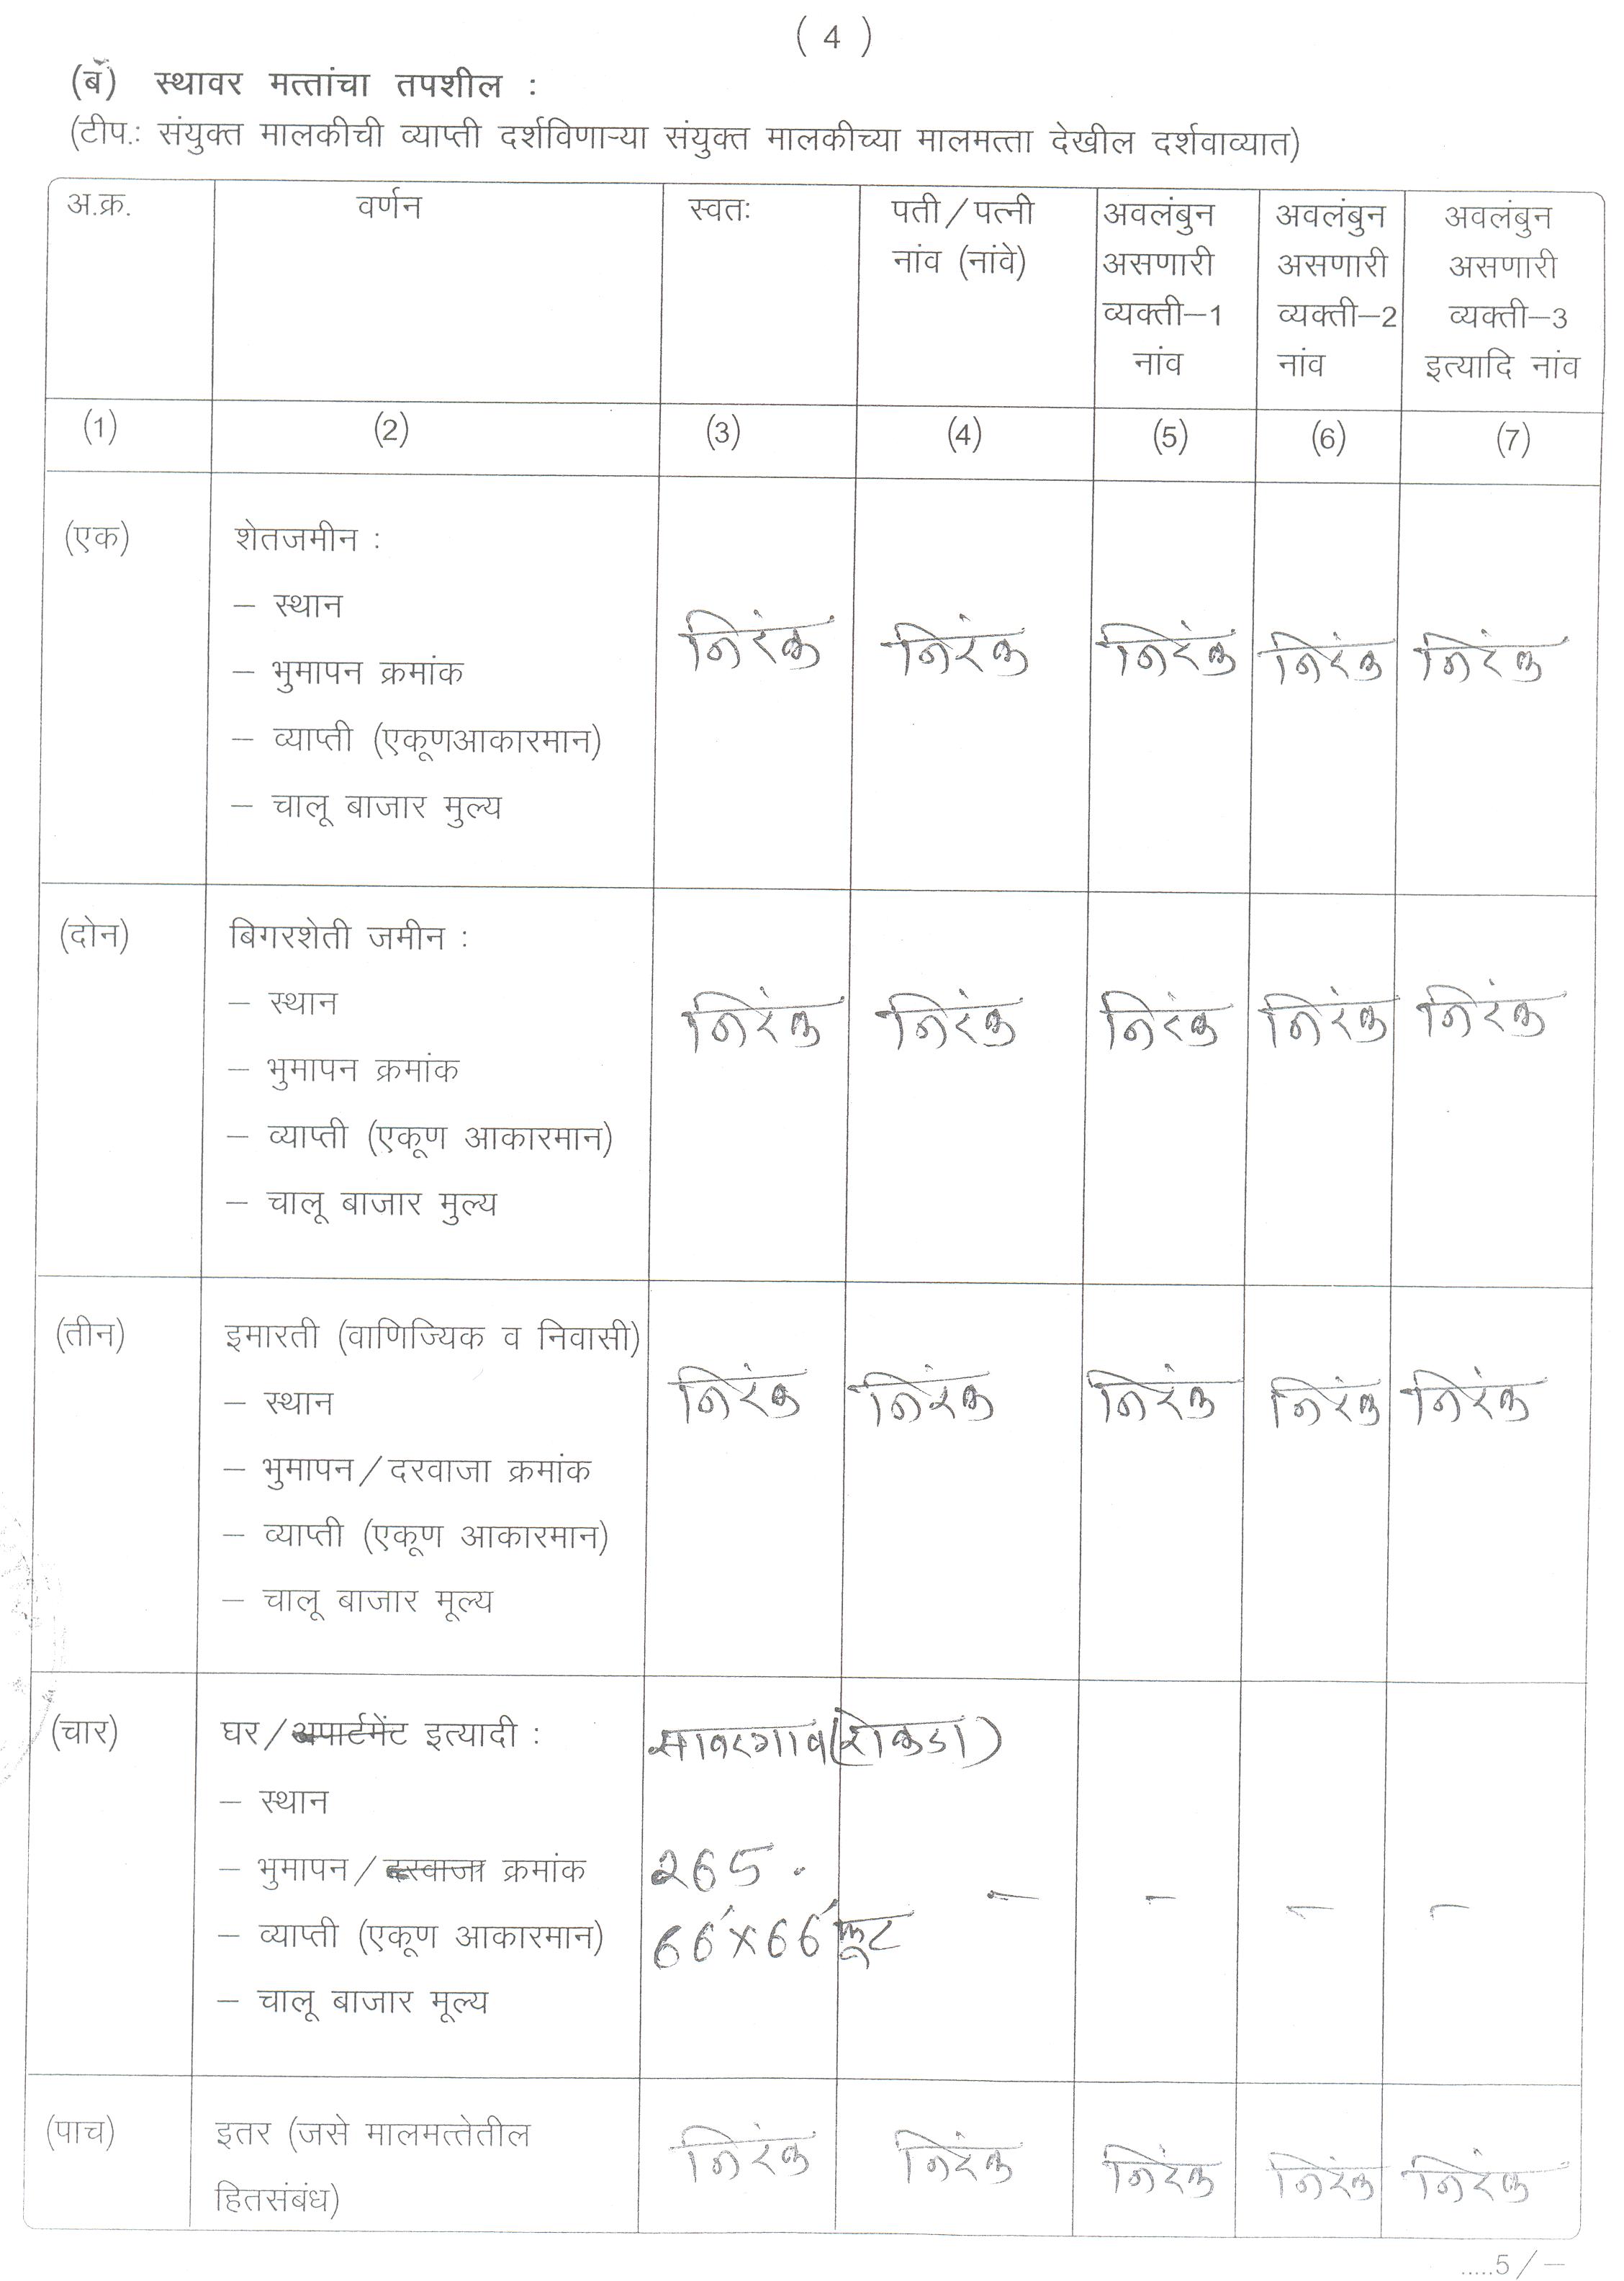 ( 4 )
(ब) स्थावर मत्तांचा तपशील :
(टीप.: संयुक्त मालकीची व्याप्ती दर्शविणाऱ्या संयुक्त मालकीच्या मालमत्ता देखील दर्शवाव्यात)
अ.क्र. वर्णन स्वतः पती/पत्नी अवलंबुन अवलंबुन अवलंबुन
नांव (नांवे) असणारी असणारी असणारी
व्यक्ती–1 व्यक्ती–2 व्यक्ती–3
नांव नांव इत्यादि नांव
(1) (2) (3) (4) (5) (6) (7)
(एक) शेतजमीन :
– स्थान
निरंक निरंक निरंक निरंक निरंक
– भुमापन क्रमांक
– व्याप्ती (एकूणआकारमान)
– चालू बाजार मुल्य
(दोन) बिगरशेती जमीन :
– स्थान निरंक निरंक निरंक निरंक निरंक
– भुमापन क्रमांक
– व्याप्ती (एकूण आकारमान)
– चालू बाजार मुल्य
(तीन) इमारती (वाणिज्यिक व निवासी)
– स्थान निरंक निरंक निरंक निरंक निरंक
– भुमापन/दरवाजा क्रमांक
– व्याप्ती (एकूण आकारमान)
– चालू बाजार मूल्य
(चार) घर/अपार्टमेंट इत्यादी : सावरगाव(रोकडा)
– स्थान
– भुमापन/दरवाजा क्रमांक 265. – – – –
– व्याप्ती (एकूण आकारमान) 66'×66' फूट
– चालू बाजार मूल्य
(पाच) इतर (जसे मालमत्तेतील निरंक निरंक निरंक निरंक निरंक
हितसंबंध)
.....5/–